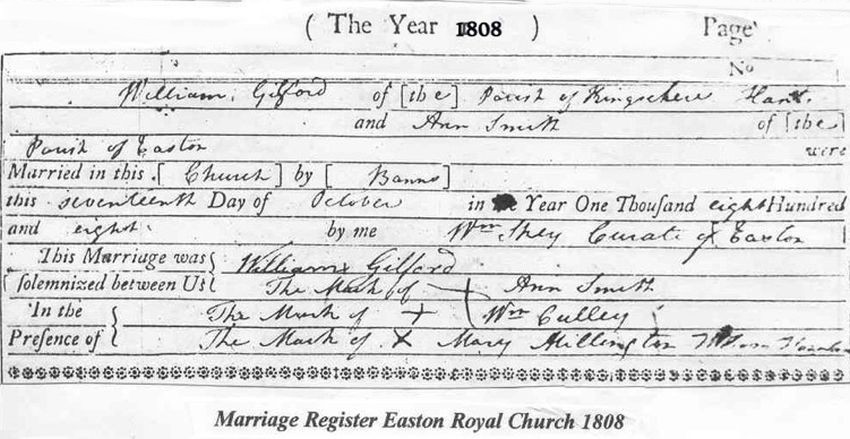 ( The Year 1808 ) Page
No
William Gilford of [the] Parish of Kingsclere Hants.
and Ann Smith of [the]
Parish of Easton were
Married in this [Church] by [Banns]
this seventeenth Day of October in the Year One Thouſand eight Hundred
and eight by me Wm Curate of Easton
This Marriage was { William Gilford
ſolemnized between Us { The Mark of + Ann Smith
In the { The Mark of + Wm Culley
Preſence of { The Mark of X Mary Millington
Marriage Register Easton Royal Church 1808